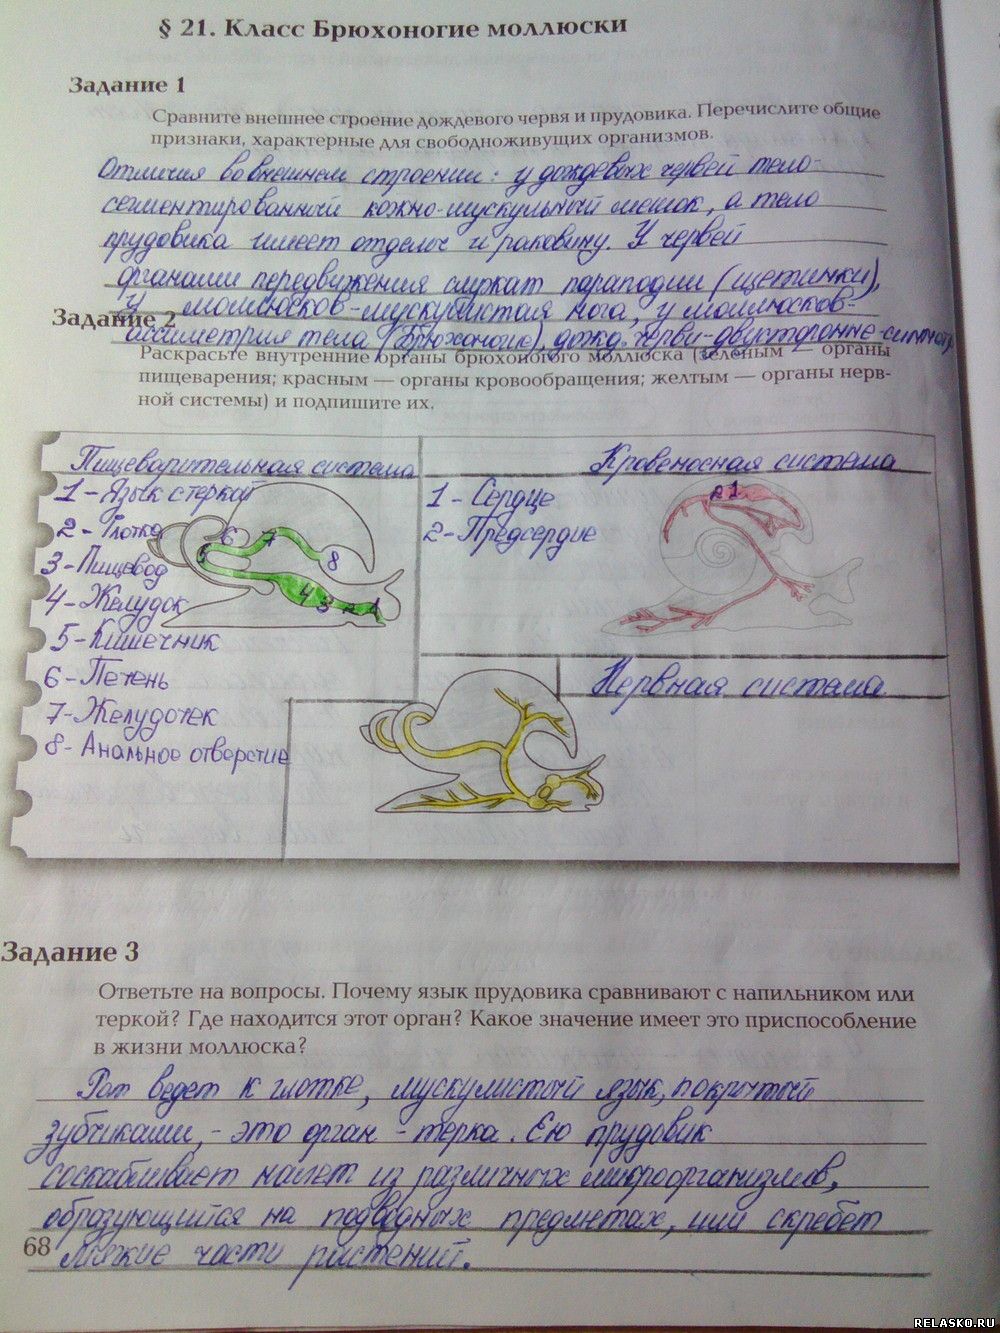 § 21. Класс Брюхоногие моллюски
Задание 1
Сравните внешнее строение дождевого червя и прудовика. Перечислите общие
признаки, характерные для свободноживущих организмов.
Отличия во внешнем строении: у дождевых червей тело-
сегментированный кожно-мускульный мешок, а тело
прудовика имеет отделы и раковину. У червей
органами передвижения служат параподии (щетинки),
у моллюсков-мускулистая нога, у моллюсков-
Задание 2
ассиметрия тела (Брюхоногие), дожд. черви-двусторонне-симметр
Раскрасьте внутренние органы брюхоногого моллюска (зеленым — органы
пищеварения; красным — органы кровообращения; желтым — органы нерв-
ной системы) и подпишите их.
Пищеварительная система
1-Язык с теркой
2- Глотка
3-Пищевод
4-Желудок
5-Кишечник
6-Печень
7-Желудочек
8- Анальное отверстие
6 7 8
5
4 3 2 1
Кровеносная система
1- Сердце
2-Предсердие
2 1
Нервная система
Задание 3
Ответьте на вопросы. Почему язык прудовика сравнивают с напильником или
теркой? Где находится этот орган? Какое значение имеет это приспособление
в жизни моллюска?
Рот ведет к глотке, мускулистый язык, покрытый
зубчиками, - это орган - терка. Ею прудовик
соскабливает налет из различных микроорганизмов,
образующийся на подводных предметах, или скребет
мягкие части растений.
68
RELASKO.RU